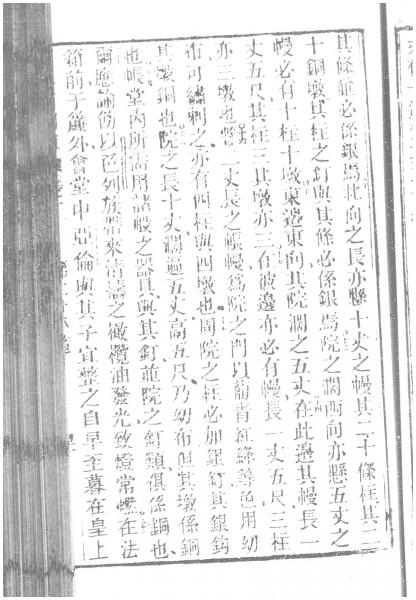 其條並必係銀焉北向之長亦懸十丈之幔其二十條柱其二
十銅墩其柱之釘與其條必係銀焉院之濶西向亦懸五丈之
幔必有十柱十墩東邉東向其院濶之五丈在此邉其幔長一
丈五尺其柱三其墩亦三在彼邉亦必有幔長一丈五尺三柱
亦三墩也一丈長之帳幔爲院之門以葡青紅綠等色用幼
布可繡刺之亦有四柱與四墩也周院之柱必加銀釘其銀鈎
其墩銅也院之長十丈濶遍五丈高五尺乃幼布但其墩係銅
也帳堂內所需用諸般之器具與其釘並院之釘類俱係銅也
爾應諭飭以色列族帶來清擣之橄欖油發光致燈常燃在法
箱前子簾外會堂中亞倫與其子宜整之自早至暮在皇上